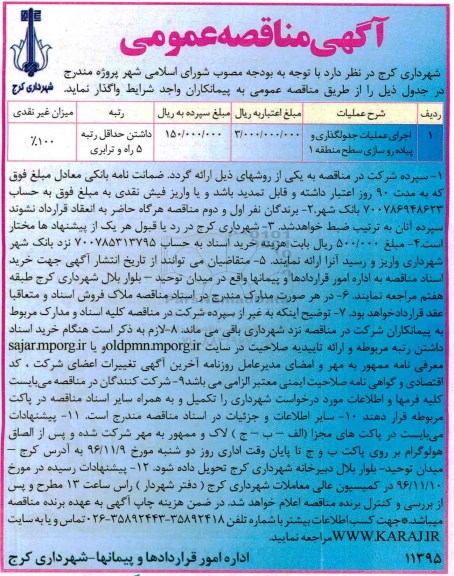 آگهی مناقصه عمومی
شهرداری کرج
شهرداری کرج در نظر دارد با توجه به بودجه مصوب شورای اسلامی شهر پروژه مندرج
در جدول ذیل را از طریق مناقصه عمومی به پیمانکاران واجد شرایط واگذار نماید.
ردیف شرح عملیات مبلغ اعتبار به ریال مبلغ سپرده به ریال رتبه میزان غیر نقدی
۱ اجرای عملیات جدولگذاری و پیاده رو سازی سطح منطقه ۱ ۳/۰۰۰/۰۰۰/۰۰۰ ۱۵۰/۰۰۰/۰۰۰ داشتن حداقل رتبه ۵ راه و ترابری ۱۰۰٪
۱- سپرده شرکت در مناقصه به یکی از روشهای ذیل ارائه گردد. ضمانت نامه بانکی معادل مبلغ فوق
که به مدت ۹۰ روز اعتبار داشته و قابل تمدید باشد و یا واریز فیش نقدی به مبلغ فوق به حساب
۷۰۰۷۸۶۹۴۸۶۲۳ بانک شهر.۲- برندگان نفر اول و دوم مناقصه هرگاه حاضر به انعقاد قرارداد نشوند
سپرده آنان به ترتیب ضبط خواهدشد. ۳- شهرداری کرج در رد یا قبول هر یک از پیشنهاد ها مختار
است.۴- مبلغ ۵۰۰/۰۰۰ ریال بابت هزینه خرید اسناد به حساب ۷۰۰۷۸۵۳۱۳۷۹۵ نزد بانک شهر
شهرداری واریز و رسید آنرا ارائه نمایند. ۵- متقاضیان می توانند از تاریخ انتشار آگهی جهت خرید
اسناد مناقصه به اداره امور قراردادها و پیمانها واقع در میدان توحید – بلوار بلال شهرداری کرج طبقه
هفتم مراجعه نمایند. ۶- در هر صورت مدارک مندرج در اسناد مناقصه ملاک فروش اسناد و متعاقبا
عقد قراردادخواهد بود. ۷- توضیح اینکه به غیر از سپرده شرکت در مناقصه کلیه اسناد و مدارک مربوط
به پیمانکاران شرکت در مناقصه نزد شهرداری باقی می ماند. ۸-لازم به ذکر است هنگام خرید اسناد
داشتن رتبه مربوطه و ارائه تاییدیه صلاحیت در سایت oldpmn.mporg.ir و یا sajar.mporg.ir
معرفی نامه ممهور به مهر و امضای مدیرعامل روزنامه آخرین آگهی تغییرات اعضای شرکت ، کد
اقتصادی و گواهی نامه صلاحیت ایمنی معتبر الزامی می باشد.۹- شرکت کنندگان در مناقصه می‌بایست
کلیه فرمها و اطلاعات مورد درخواست شهرداری را تکمیل و به همراه سایر اسناد مناقصه در پاکت
مربوطه قرار دهند ۱۰- سایر اطلاعات و جزئیات در اسناد مناقصه مندرج است. ۱۱- پیشنهادات
می‌بایست در پاکت های مجزا (الف – ب – ج ) لاک و ممهور به مهر شرکت شده و پس از الصاق
هولوگرام بر روی پاکت ب و ج تا پایان وقت اداری روز دو شنبه مورخ ۹۶/۱۱/۹ به آدرس کرج –
میدان توحید- بلوار بلال دبیرخانه شهرداری کرج تحویل داده شود. ۱۲- پیشنهادات رسیده در مورخ
۹۶/۱۱/۱۰ در کمیسیون عالی معاملات شهرداری کرج ( دفتر شهردار ) راس ساعت ۱۳ مطرح و پس
از بررسی و کنترل برنده مناقصه اعلام خواهد شد. در ضمن هزینه چاپ آگهی به عهده برنده مناقصه
میباشد.*جهت کسب اطلاعات بیشتر با شماره تلفن ۳۵۸۹۲۴۱۸-۳۵۸۹۲۴۴۳-۰۲۶ تماس و یا به سایت
WWW.KARAJ.IR مراجعه نمایید.
اداره امور قراردادها و پیمانها-شهرداری کرج
۱۱۳۹۵